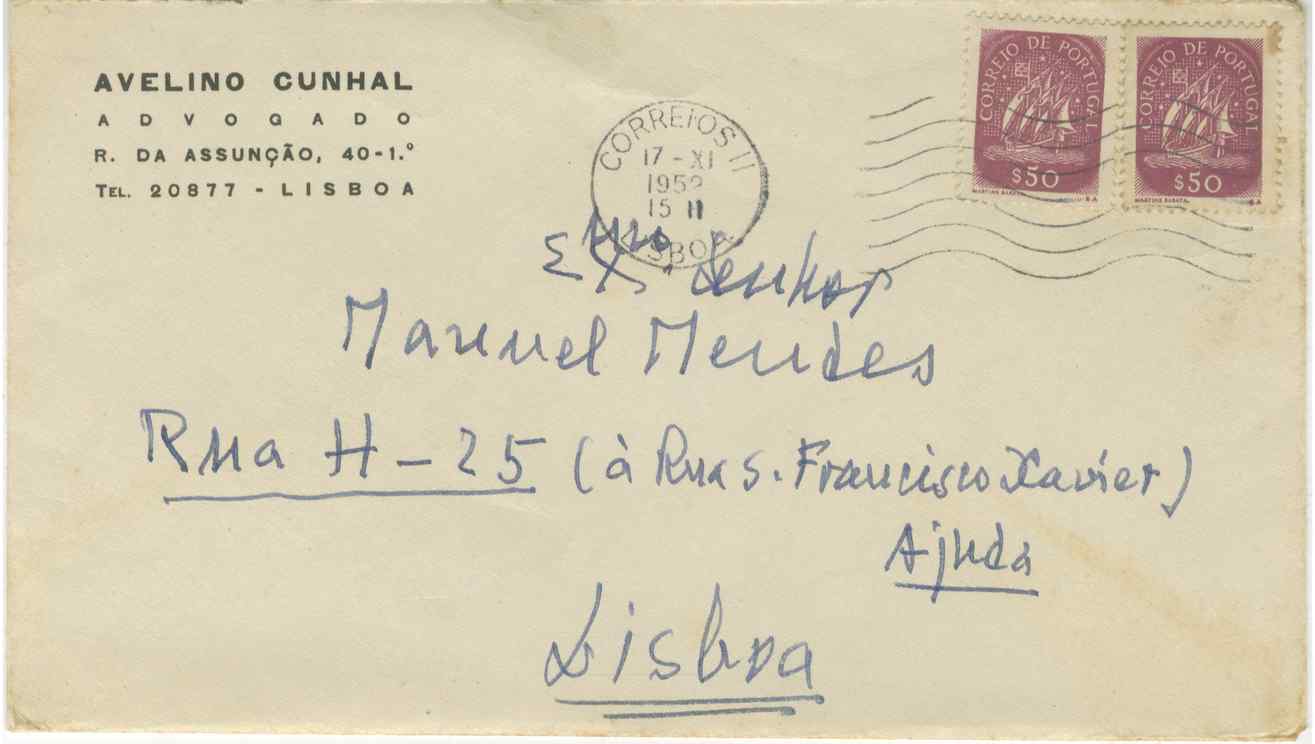 AVELINO CUNHAL
ADVOGADO
R. DA ASSUNÇÃO, 40-1.º
TEL. 20877 - LISBOA
CORREIOS II
17 - XI
1952
15 II
LISBOA
CORREIO DE PORTUGAL
$50
MARTINS BARATA.
CORREIO DE PORTUGAL
$50
MARTINS BARATA.
Exmo. Senhor
Manuel Mendes
Rua H - 25 (à Rua S. Francisco Xavier)
Ajuda
Lisboa